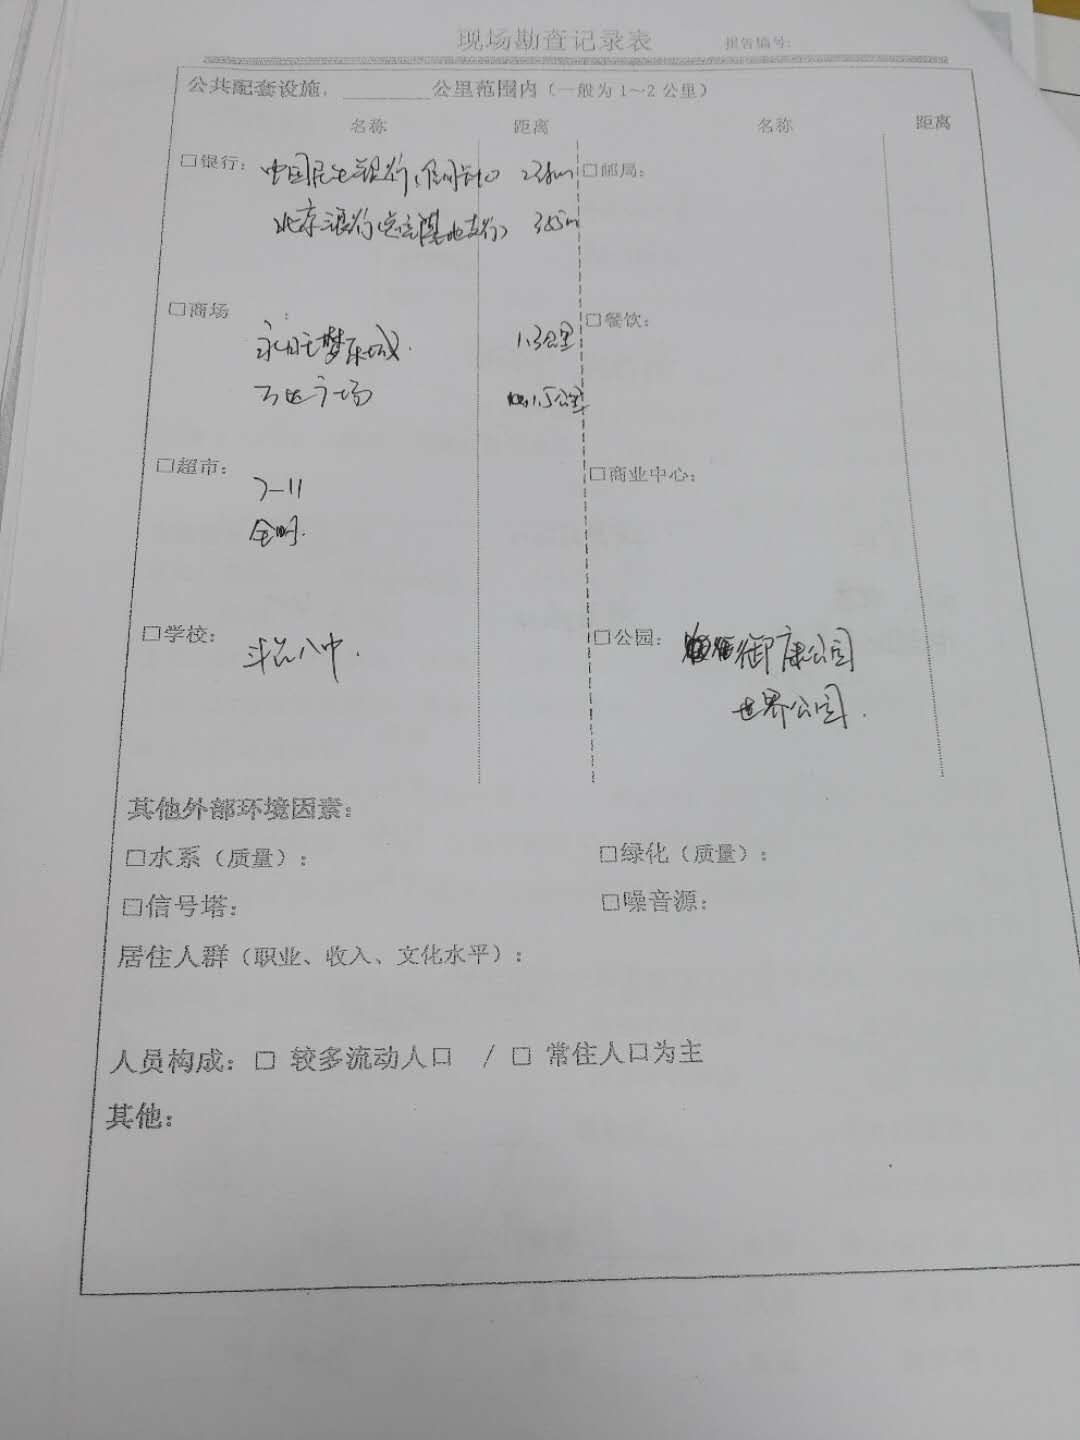 现场勘查记录表 报告编号:
公共配套设施, ________公里范围内(一般为1~2公里)
名称 距离 名称 距离
□银行: 中国民生银行(信用卡中心) □邮局:
北京银行(总部基地支行) 385m
□商场: □餐饮:
永旺梦乐城. 1.3公里
万达广场 1.5公里
□超市: □商业中心:
7-11
全时.
□学校: □公园: 御康公园
八中. 世界公园.
其他外部环境因素:
□水系(质量): □绿化(质量):
□信号塔: □噪音源:
居住人群(职业、收入、文化水平):
人员构成: □ 较多流动人口 / □ 常住人口为主
其他: